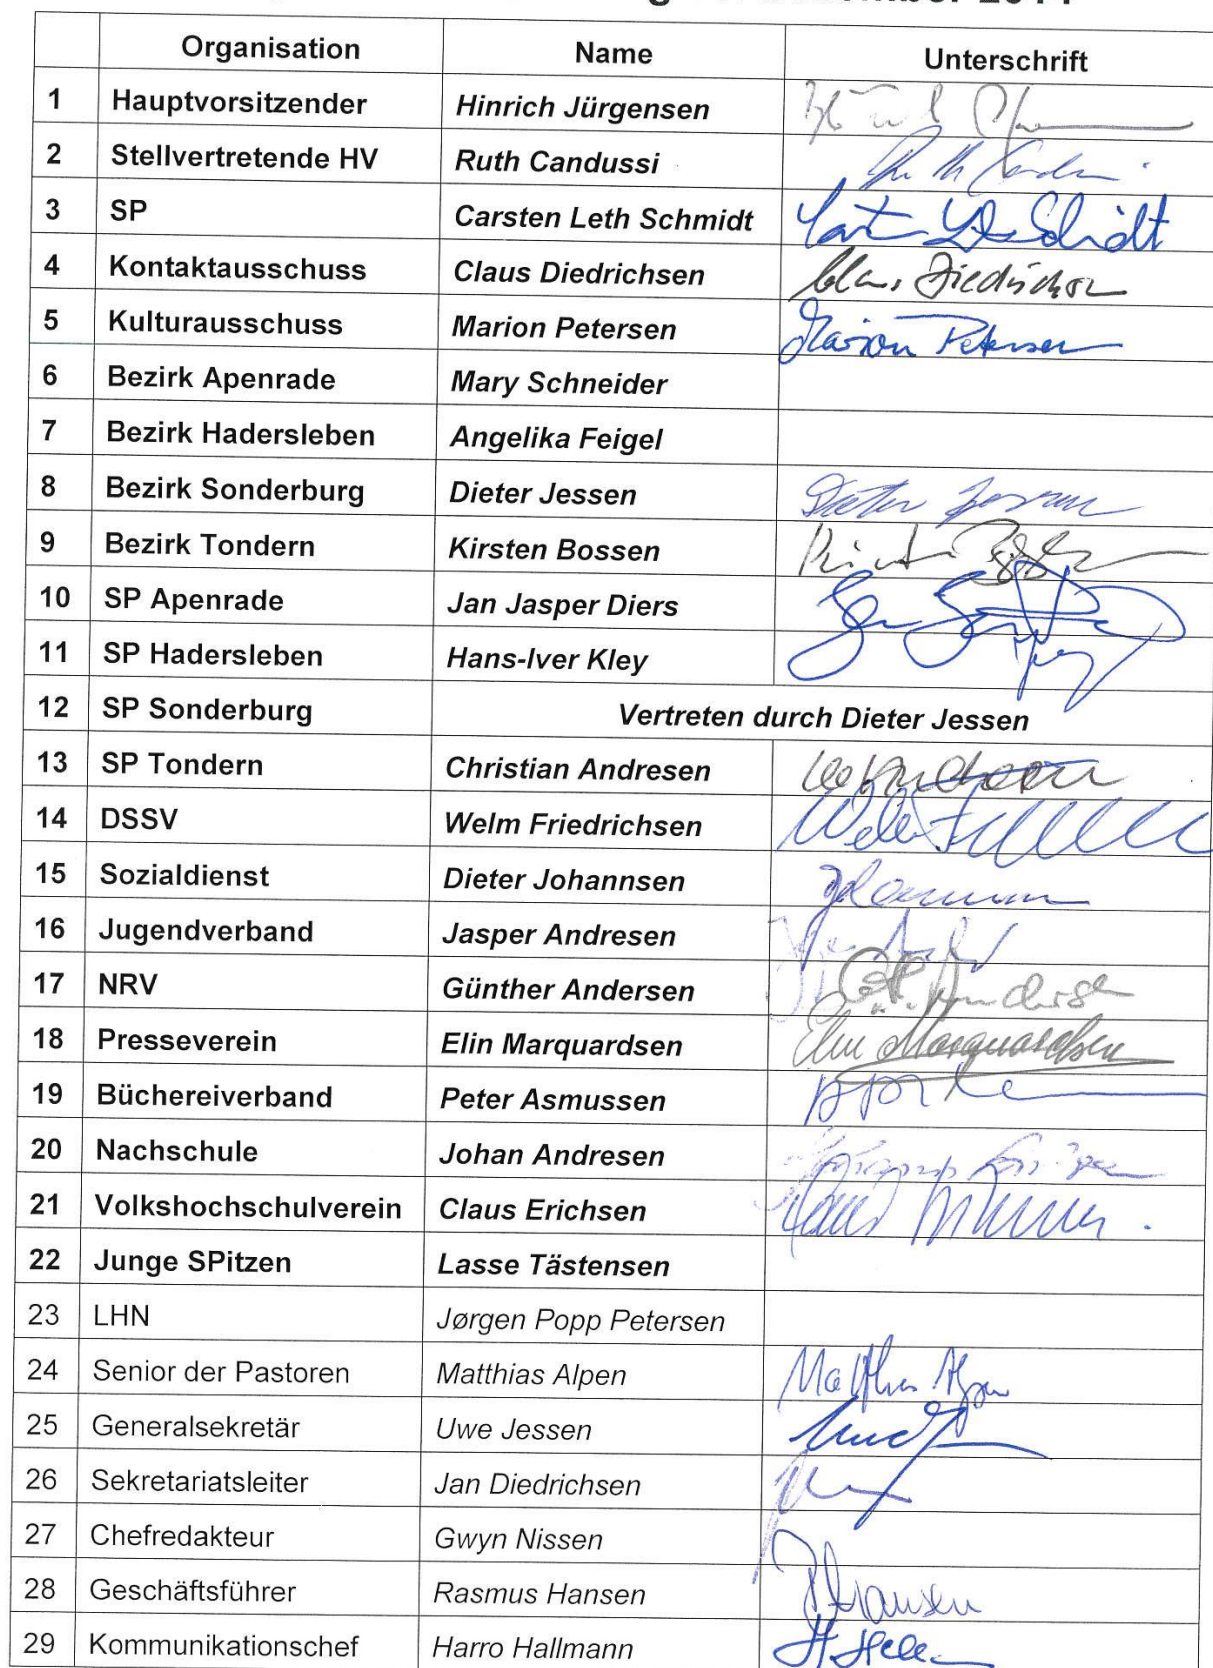 Organisation Name Unterschrift
1 Hauptvorsitzender Hinrich Jürgensen
2 Stellvertretende HV Ruth Candussi
3 SP Carsten Leth Schmidt
4 Kontaktausschuss Claus Diedrichsen Claus Diedrichsen
5 Kulturausschuss Marion Petersen Marion Petersen
6 Bezirk Apenrade Mary Schneider
7 Bezirk Hadersleben Angelika Feigel
8 Bezirk Sonderburg Dieter Jessen Dieter Jessen
9 Bezirk Tondern Kirsten Bossen
10 SP Apenrade Jan Jasper Diers
11 SP Hadersleben Hans-Iver Kley
12 SP Sonderburg Vertreten durch Dieter Jessen
13 SP Tondern Christian Andresen
14 DSSV Welm Friedrichsen
15 Sozialdienst Dieter Johannsen
16 Jugendverband Jasper Andresen
17 NRV Günther Andersen
18 Presseverein Elin Marquardsen Elin Marquardsen
19 Büchereiverband Peter Asmussen
20 Nachschule Johan Andresen
21 Volkshochschulverein Claus Erichsen
22 Junge SPitzen Lasse Tästensen
23 LHN Jørgen Popp Petersen
24 Senior der Pastoren Matthias Alpen Matthias Alpen
25 Generalsekretär Uwe Jessen
26 Sekretariatsleiter Jan Diedrichsen
27 Chefredakteur Gwyn Nissen
28 Geschäftsführer Rasmus Hansen
29 Kommunikationschef Harro Hallmann